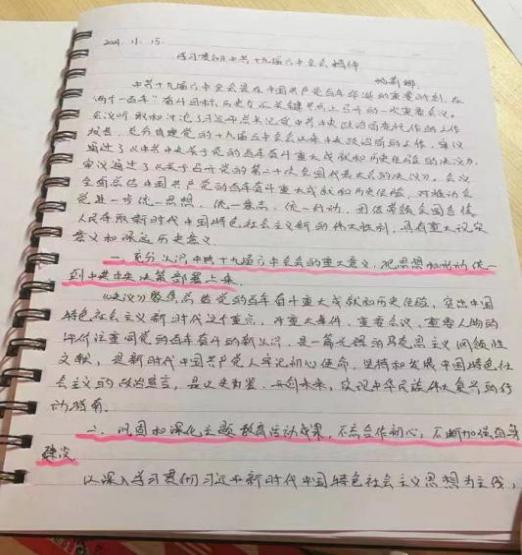 2021. 11. 15.
学习贯彻中共十九届六中全会精神
中共十九届六中全会是在中国共产党百年华诞的重要时刻，在
"两个一百年"奋斗目标历史交汇关键节点上召开的一次重要会议。
会议听取和讨论了习近平总书记受中共中央政治局委托作的工作
报告，充分肯定党的十九届五中全会以来中央政治局的工作，审议
通过了《中共中央关于党的百年奋斗重大成就和历史经验的决议》，
审议通过了《关于召开党的第二十次全国代表大会的决议》。会议
全面总结中国共产党的百年奋斗重大成就和历史经验，对推动全
党进一步统一思想、统一意志、统一行动，团结带领全国各族
人民夺取新时代中国特色社会主义新的伟大胜利，具有重大现实
意义和深远历史意义。
一、充分认识中共十九届六中全会的重大意义，把思想和行动统一
到中共中央决策部署上来。
《决议》聚焦总结党的百年奋斗重大成就和历史经验，突出中国
特色社会主义新时代这个重点，对重大事件、重要会议、重要人物的
评价注重同党的百年奋斗的新认识，是一篇光辉的马克思主义纲领性
文献，是新时代中国共产党人牢记初心使命、坚持和发展中国特色社
会主义的政治宣言，是以史为鉴、开创未来、实现中华民族伟大复兴的行
动指南。
二、巩固和深化主题教育活动成果，不忘合作初心，不断加强自身
建设
以深入学习贯彻习近平新时代中国特色社会主义思想为主线，